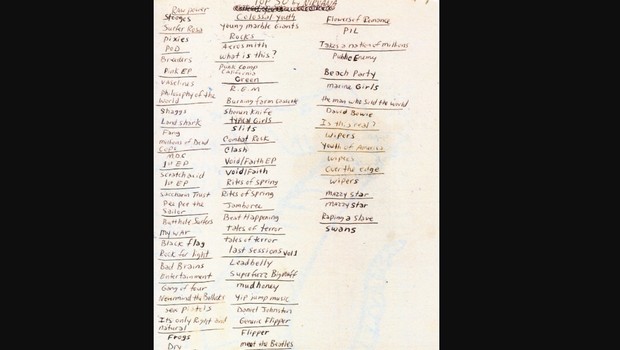 TOP 50 by NIRVANA
Raw power
Stooges
Surfer Rosa
pixies
POD
Breeders
Pink EP
vaselines
Philosophy of the
world
Shaggs
Land shark
Fang
millions of Dead
Cops
M.D.C
1st EP
Scratch acid
1st EP
Saccharin Trust
Pee pee the
Sailor
Butthole Surfers
my war
Black flag
Rock for light
Bad Brains
Entertainment
Gang of four
Nevermind the Bollocks
sex pistols
Its only Right and
natural
Frogs
Dry
Colossal youth
young marble Giants
Rocks
Aerosmith
what is this?
punk comp
California
Green
R.E.M
Burning farm cassette
Shonen Knife
typical Girls
slits
Combat Rock
Clash
Void/Faith EP
Void/Faith
Rites of spring
Rites of spring
Jamboree
Beat Happening
Tales of terror
tales of terror
last sessions vol 1
Leadbelly
Superfuzz Bigmuff
mudhoney
yip jump music
Daniel Johnston
Generic Flipper
Flipper
meet the Beatles
Flowers of Romance
PIL
Takes a nation of millions
Public Enemy
Beach Party
marine Girls
the man who sold the world
David Bowie
Is this real?
wipers
Youth of America
wipers
Over the edge
wipers
mazzy star
mazzy star
Raping a slave
swans